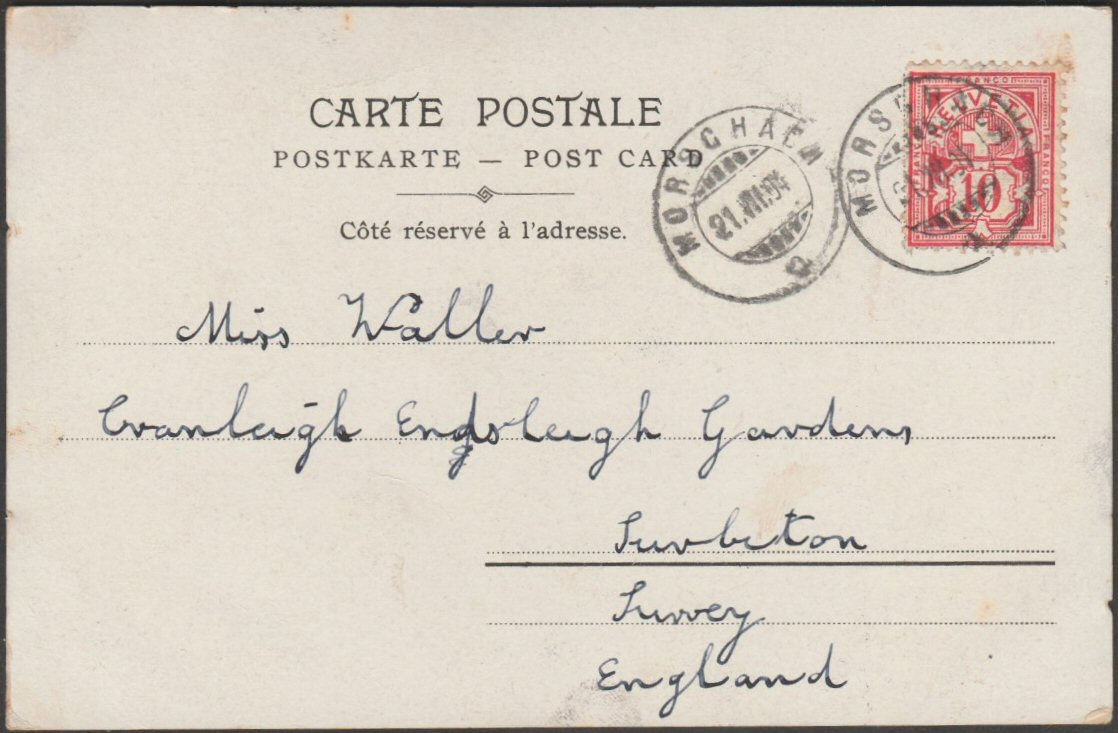 CARTE POSTALE
POSTKARTE — POST CARD
Côté réservé à l'adresse.
MORSCHACH
21.VIII.04
MORSCHACH
FRANCO
HELVETIA
FRANCO
10
Miss Waller
Cranleigh Endsleigh Gardens
Surbiton
Surrey
England